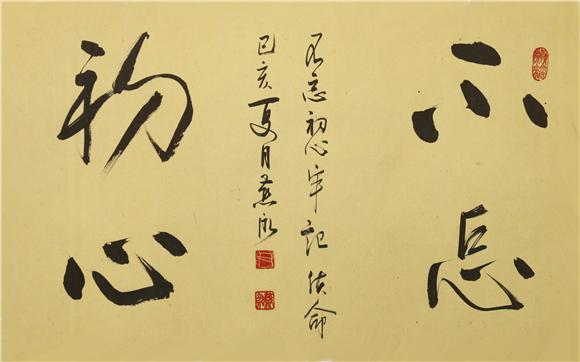 不忘
不忘初心牢记使命
己亥夏月燕
初心